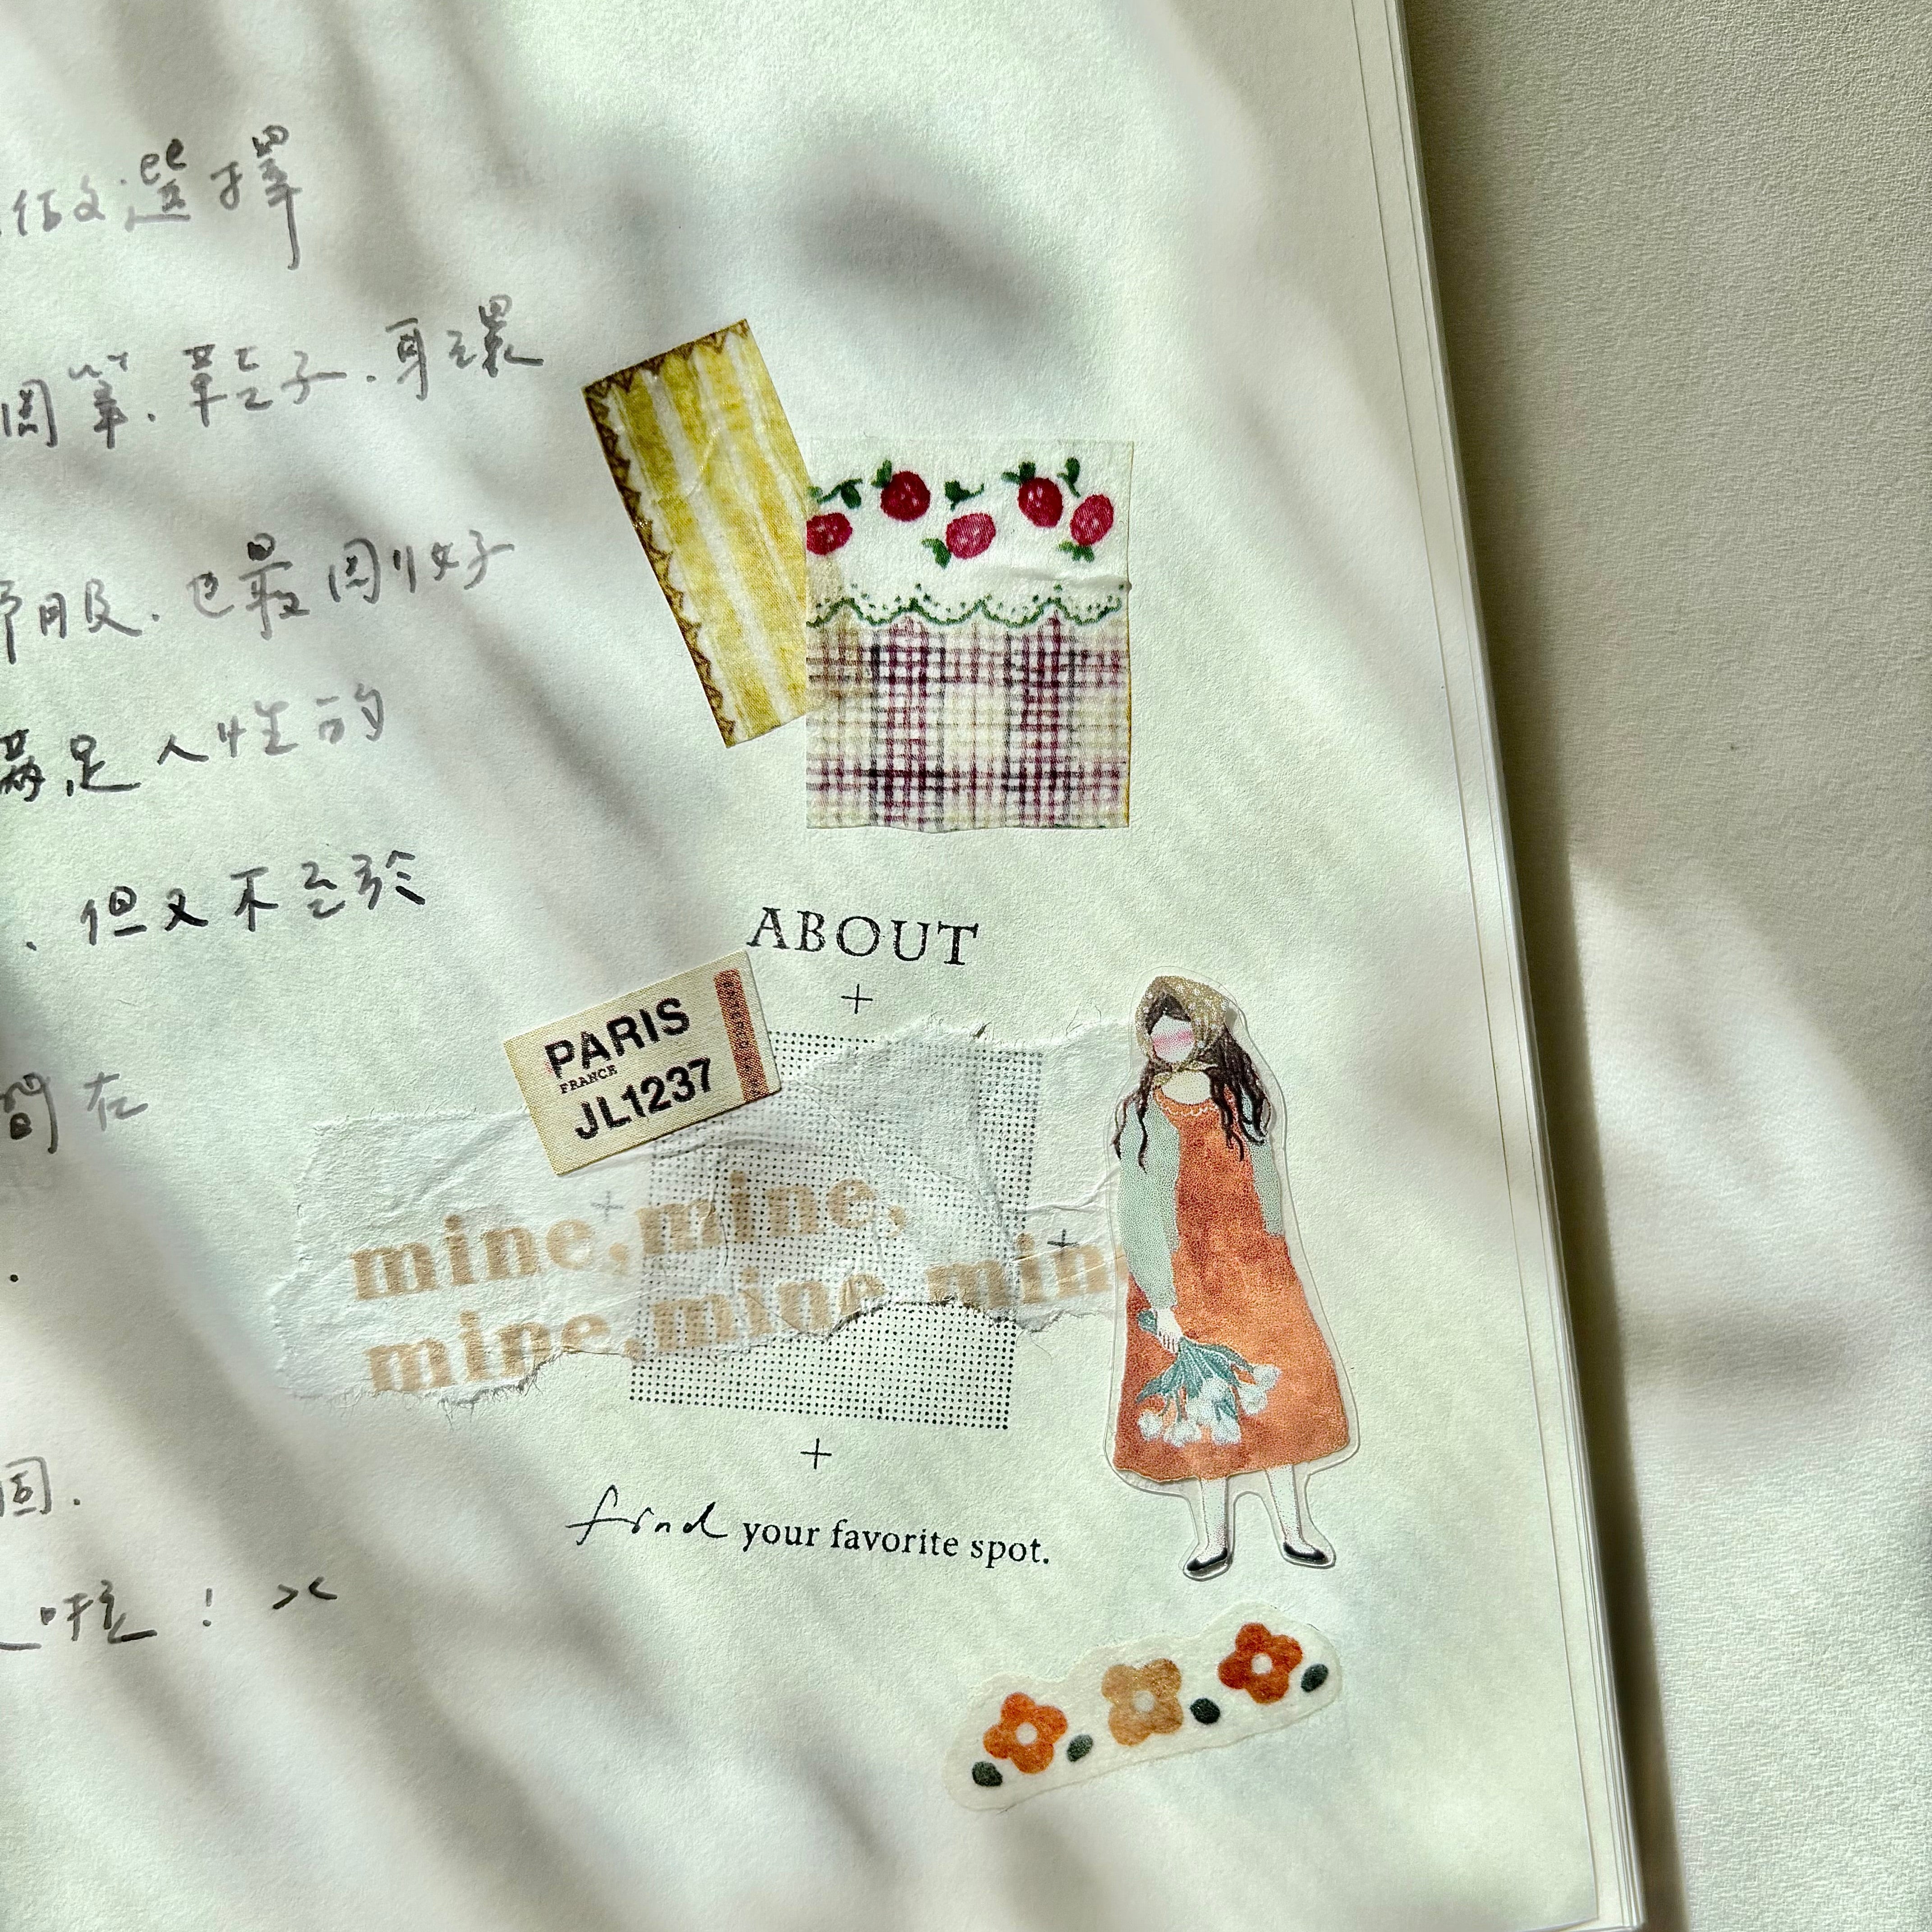 做選擇
圍筆.鞋子.耳環
服.也最剛好
滿足人性的
.但又不至於
間在
固.
啦!
ABOUT
PARIS
FRANCE
JL1237
mine,mine,
mine,mine mine
find your favorite spot.